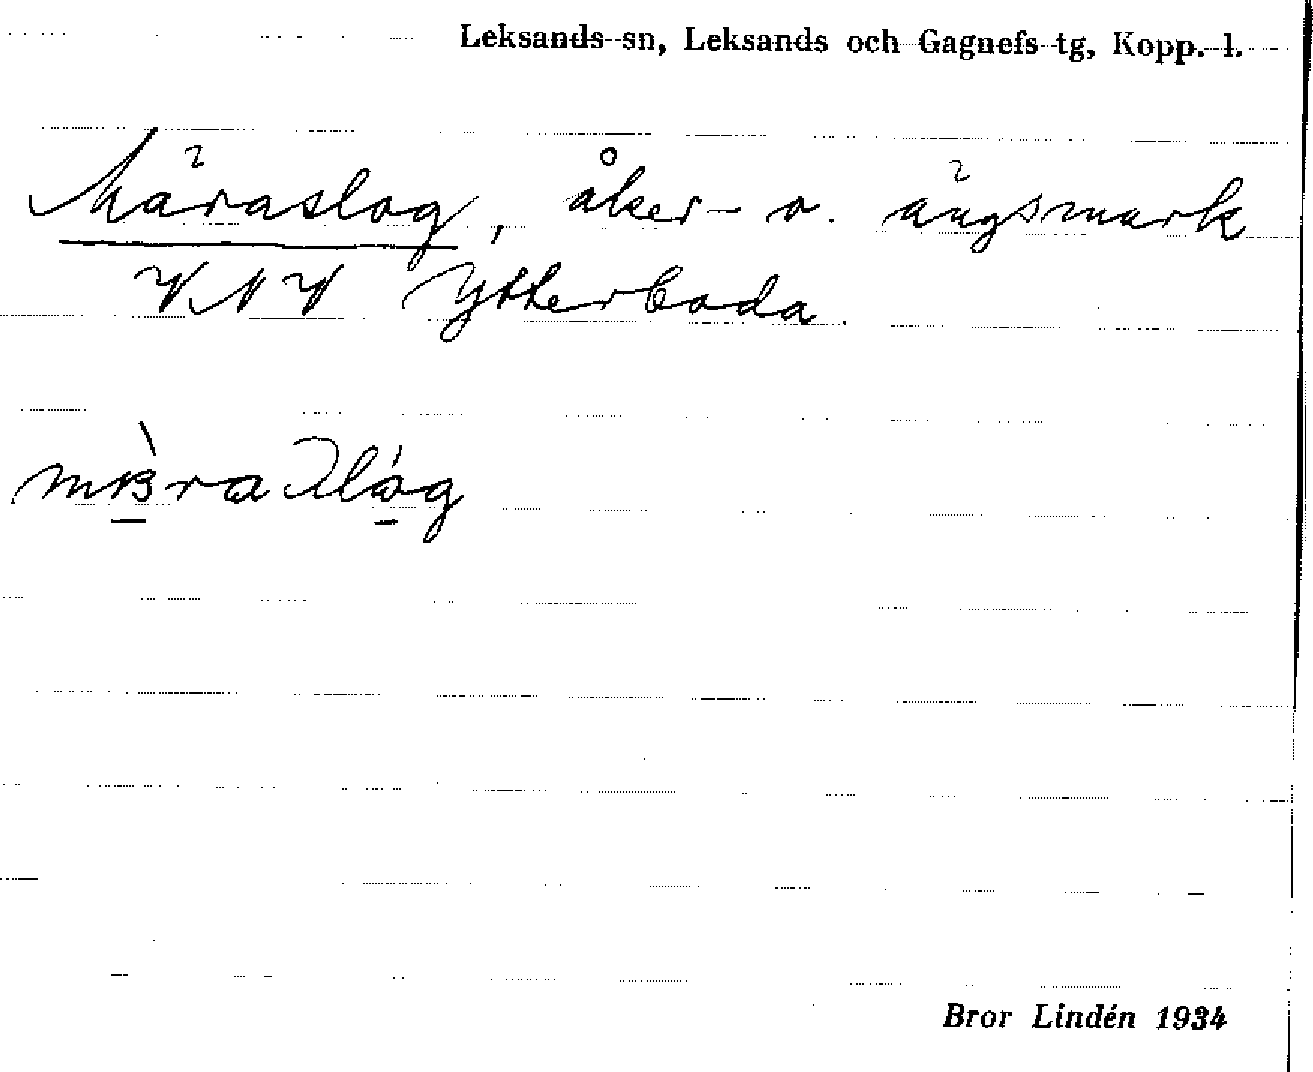 Leksands sn, Leksands och Gagnefs tg, Kopp. l.
Märaslog, åker- o. ängsmark
VNV Ytterboda.
Bror Lindén 1934